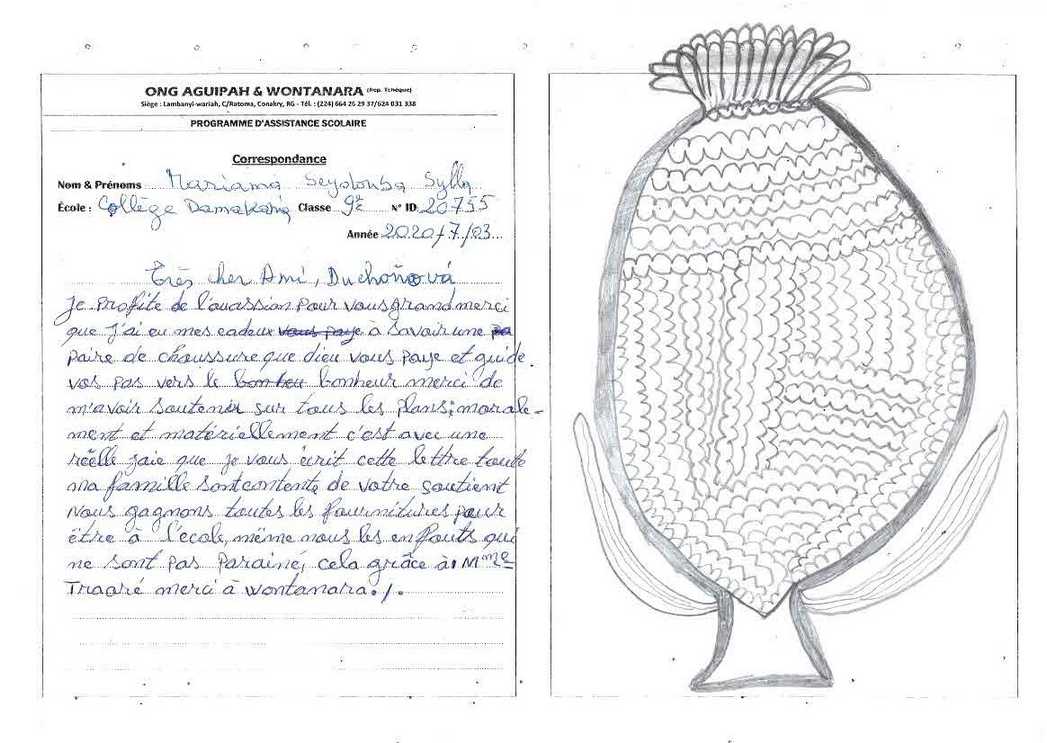 ONG AGUIPAH & WONTANARA (Rep. Tchèque)
Siège : Lambanyi-wariah, C/Ratoma, Conakry, RG - Tél. : (224) 664 26 29 37/624 031 338
PROGRAMME D'ASSISTANCE SCOLAIRE
Correspondance
Nom & Prénoms Mariama Seydouba Sylla
École : Collège Damakania Classe 9è N° ID 20755
Année 2020/7/03
Très cher Ami, Duchoňová
Je profite de l'ouassion pour vous grand merci
que j'ai eu mes cadeux vous paye a savoir une pa
paire de chaussure que dieu vous paye et guide
vos pas vers le bonheu bonheur merci de
m'avoir soutenir sur tous les plans; morale-
ment et matériellement c'est avec une
réelle jaie que je vous écrit cette lettre toute
ma famille sont contente de votre soutient
nous gagnons toutes les fournitures pour
être à l'école, même nous les enfants qui
ne sont pas Parainé, cela grâce à Mme
Traoré merci à wontanara./.